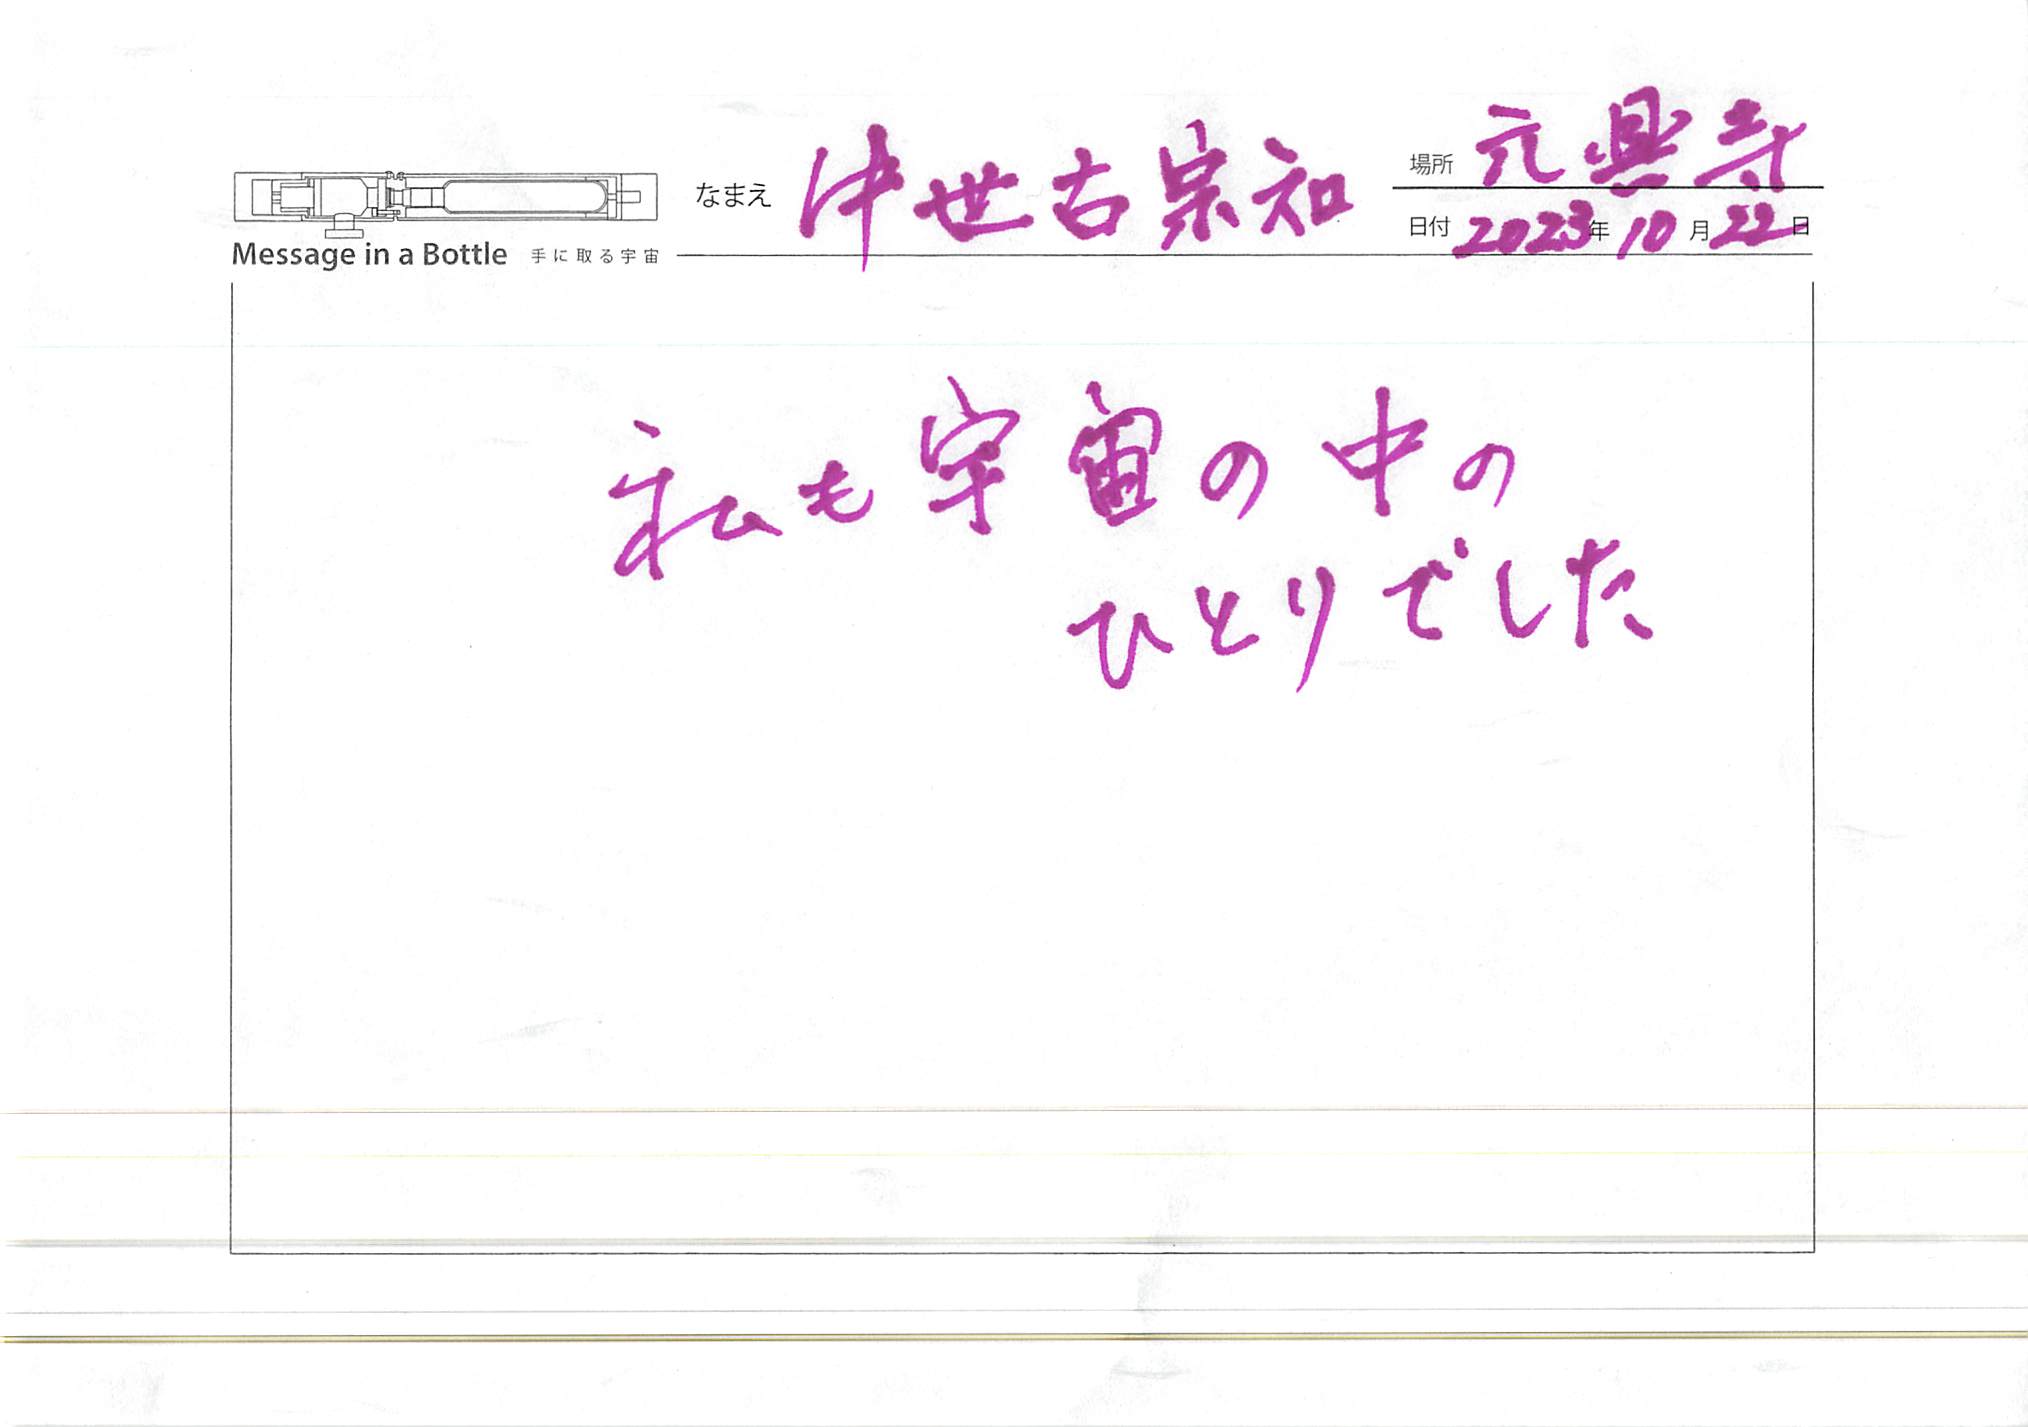 なまえ 中世古宗知
場所 元興寺
日付 2023年10月22日
Message in a Bottle 手に取る宇宙
私も宇宙の中の
ひとりでした